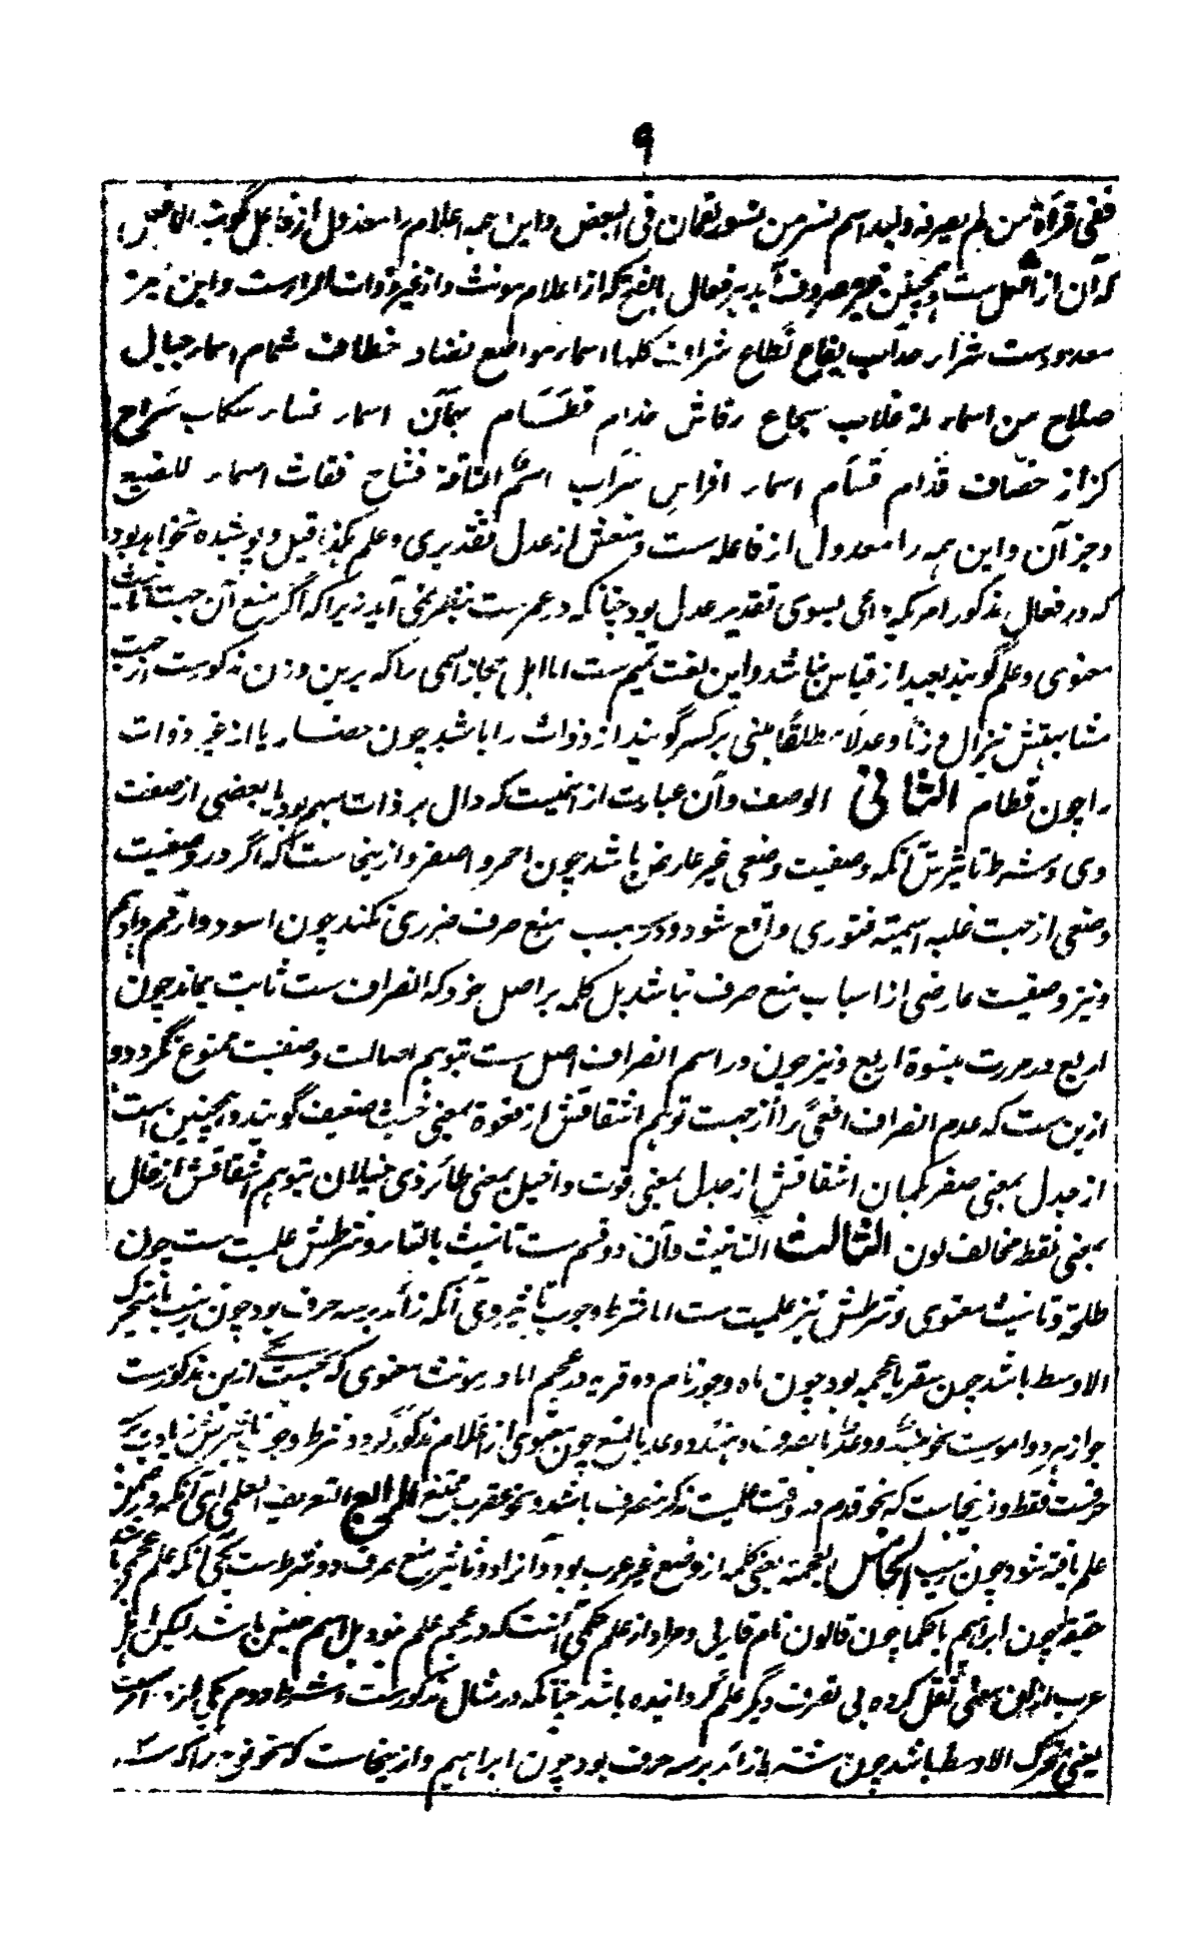 ۹
ففی قرأة من لم یصرفه ولبد اسم نسر من نسور لقمان فی البعض و این همه اعلام را معدول از فاعل گویند الا
که آن از افعل ست و همچنین غیر مصروف آید بر فعال بالفتح که از اعلام مونث و از غیر ذوات الراست و این نیز
معدودست شراء لصاف نطاع شراف کلها اسماء مواضع نضاد خطاف شمام اسماء جبال
صلاح من اسماء مکة غلاب سجاع رقاش حذام قطام اسماء نساء سکاب سراح
کزاز خصاف قدام قسام اسماء افراس سراب اسم الناقة فشاح فقاث اسماء للضبع
و جز آن و این همه را معدول از فاعله ست و منعش از عدل تقدیری و علم هکذا قیل و پوشیده نخواهد بود
که در فعال مذکور امر کیه داعی بسوی تقدیر عدل بود چنانکه در عمرست بنظر نمی آید زیرا که اگر منع آن جهت تانیث
معنوی و علم گویند بعید از قیاس نباشد و این لغت تمیم ست اما اهل حجاز اسمی را که برین وزن مذکورست از جهت
مشابهتش نزال وزنا و عدلا مطلقا مبنی بر کسر گویند از ذوات را باشد چون حضار یا از غیر ذوات
را چون قطام الثانی الوصف و آن عبارت از اسمیست که دال بر ذات مبهم بود با بعضی از صفت
وی و شرط تاثیرش آنکه وصفیت وضعی غیر عارض باشد چون احمر و اصفر و ازینجاست که اگر در وصفیت
وضعی از جهت غلبه اسمیته فتوری واقع شود در سبب منع صرف ضرری نکند چون اسود و ارقم و ادهم
و نیز وصفیت عارضی از اسباب منع صرف نباشد بل کلمه بر اصل خود که انصراف ست ثابت بماند چون
اربع در مررت بنسوة اربع و نیز چون در اسم انصراف اصل ست بتوهم اصالت وصفیت ممنوع نگردد و
ازین ست که عدم انصراف افعی را از جهت توهم اشتقاقش از فعوة بمعنی خبث ضعیف گویند و همچنین است
از جدل بمعنی صقر بگمان اشتقاقش از جدل بمعنی قوت و اخیل بمعنی طائر ذی خیلان بتوهم اشتقاقش از خال
بمعنی نقطه مخالف لون الثالث التانیث و آن دو قسم ست تانیث بالتاء و شرطش علمیت ست چون
طلحة و تانیث معنوی و شرطش نیز علمیت ست اما شرط وجوب تاثیر وی آنکه زائد بر سه حرف بود چون زینب یا متحرک
الاوسط باشد چون سقر یا عجمه بود چون ماه و جور نام دو قریه در عجم اما در مونث معنوی که ازین مذکورست
جواز هر دو امرست نحو هند و دعد بالصرف و هند و دعد بالمنع چون معنوی از اعلام مذکر گردد شرط وجوب تاثیرش زیادت بر سه
حرفست فقط و ازینجاست که نحو قدم در وقت علمیت مذکر منصرف باشد و نحو عقرب ممتنع الرابع التعریف العلمی ای آنکه در ضمن
علم یافته شود چون زینب الخامس العجمة یعنی کلمه از وضع غیر عرب بود و آنرا در تاثیر منع صرف دو شرط ست یکی آنکه علم عجمی باشد
حقیقة چون ابراهیم یا حکما چون قالون نام قاری و مراد از علم حکمی آنست که در عجم علم نبود بل اسم جنس باشد لیکن اهل
عرب ازان معنی نقل کرده بی تصرف دیگر علم گردانیده باشد چنانکه در مثال مذکورست و شرط دوم یکی از دو امرست
یعنی متحرک الاوسط باشد چون شتر یا زائد بر سه حرف بود چون ابراهیم و ازینجاست که نحو نوح را که